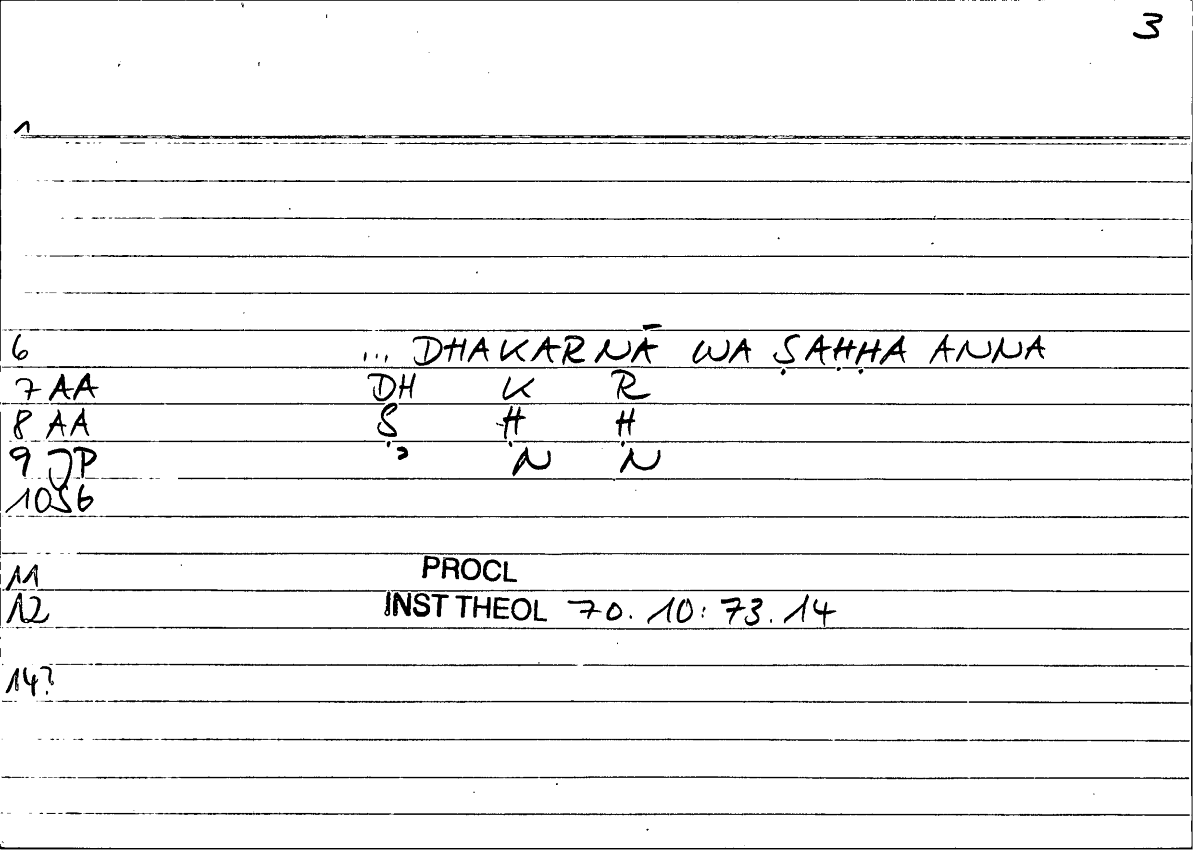 3
1
6 ... DHAKARNĀ WA ṢAḤḤA ANNA
7 AA DH K R
8 AA Ṣ Ḥ Ḥ
9 JP ʾ N N
10 S6
11 PROCL
12 INST THEOL 70.10:73.14
14?